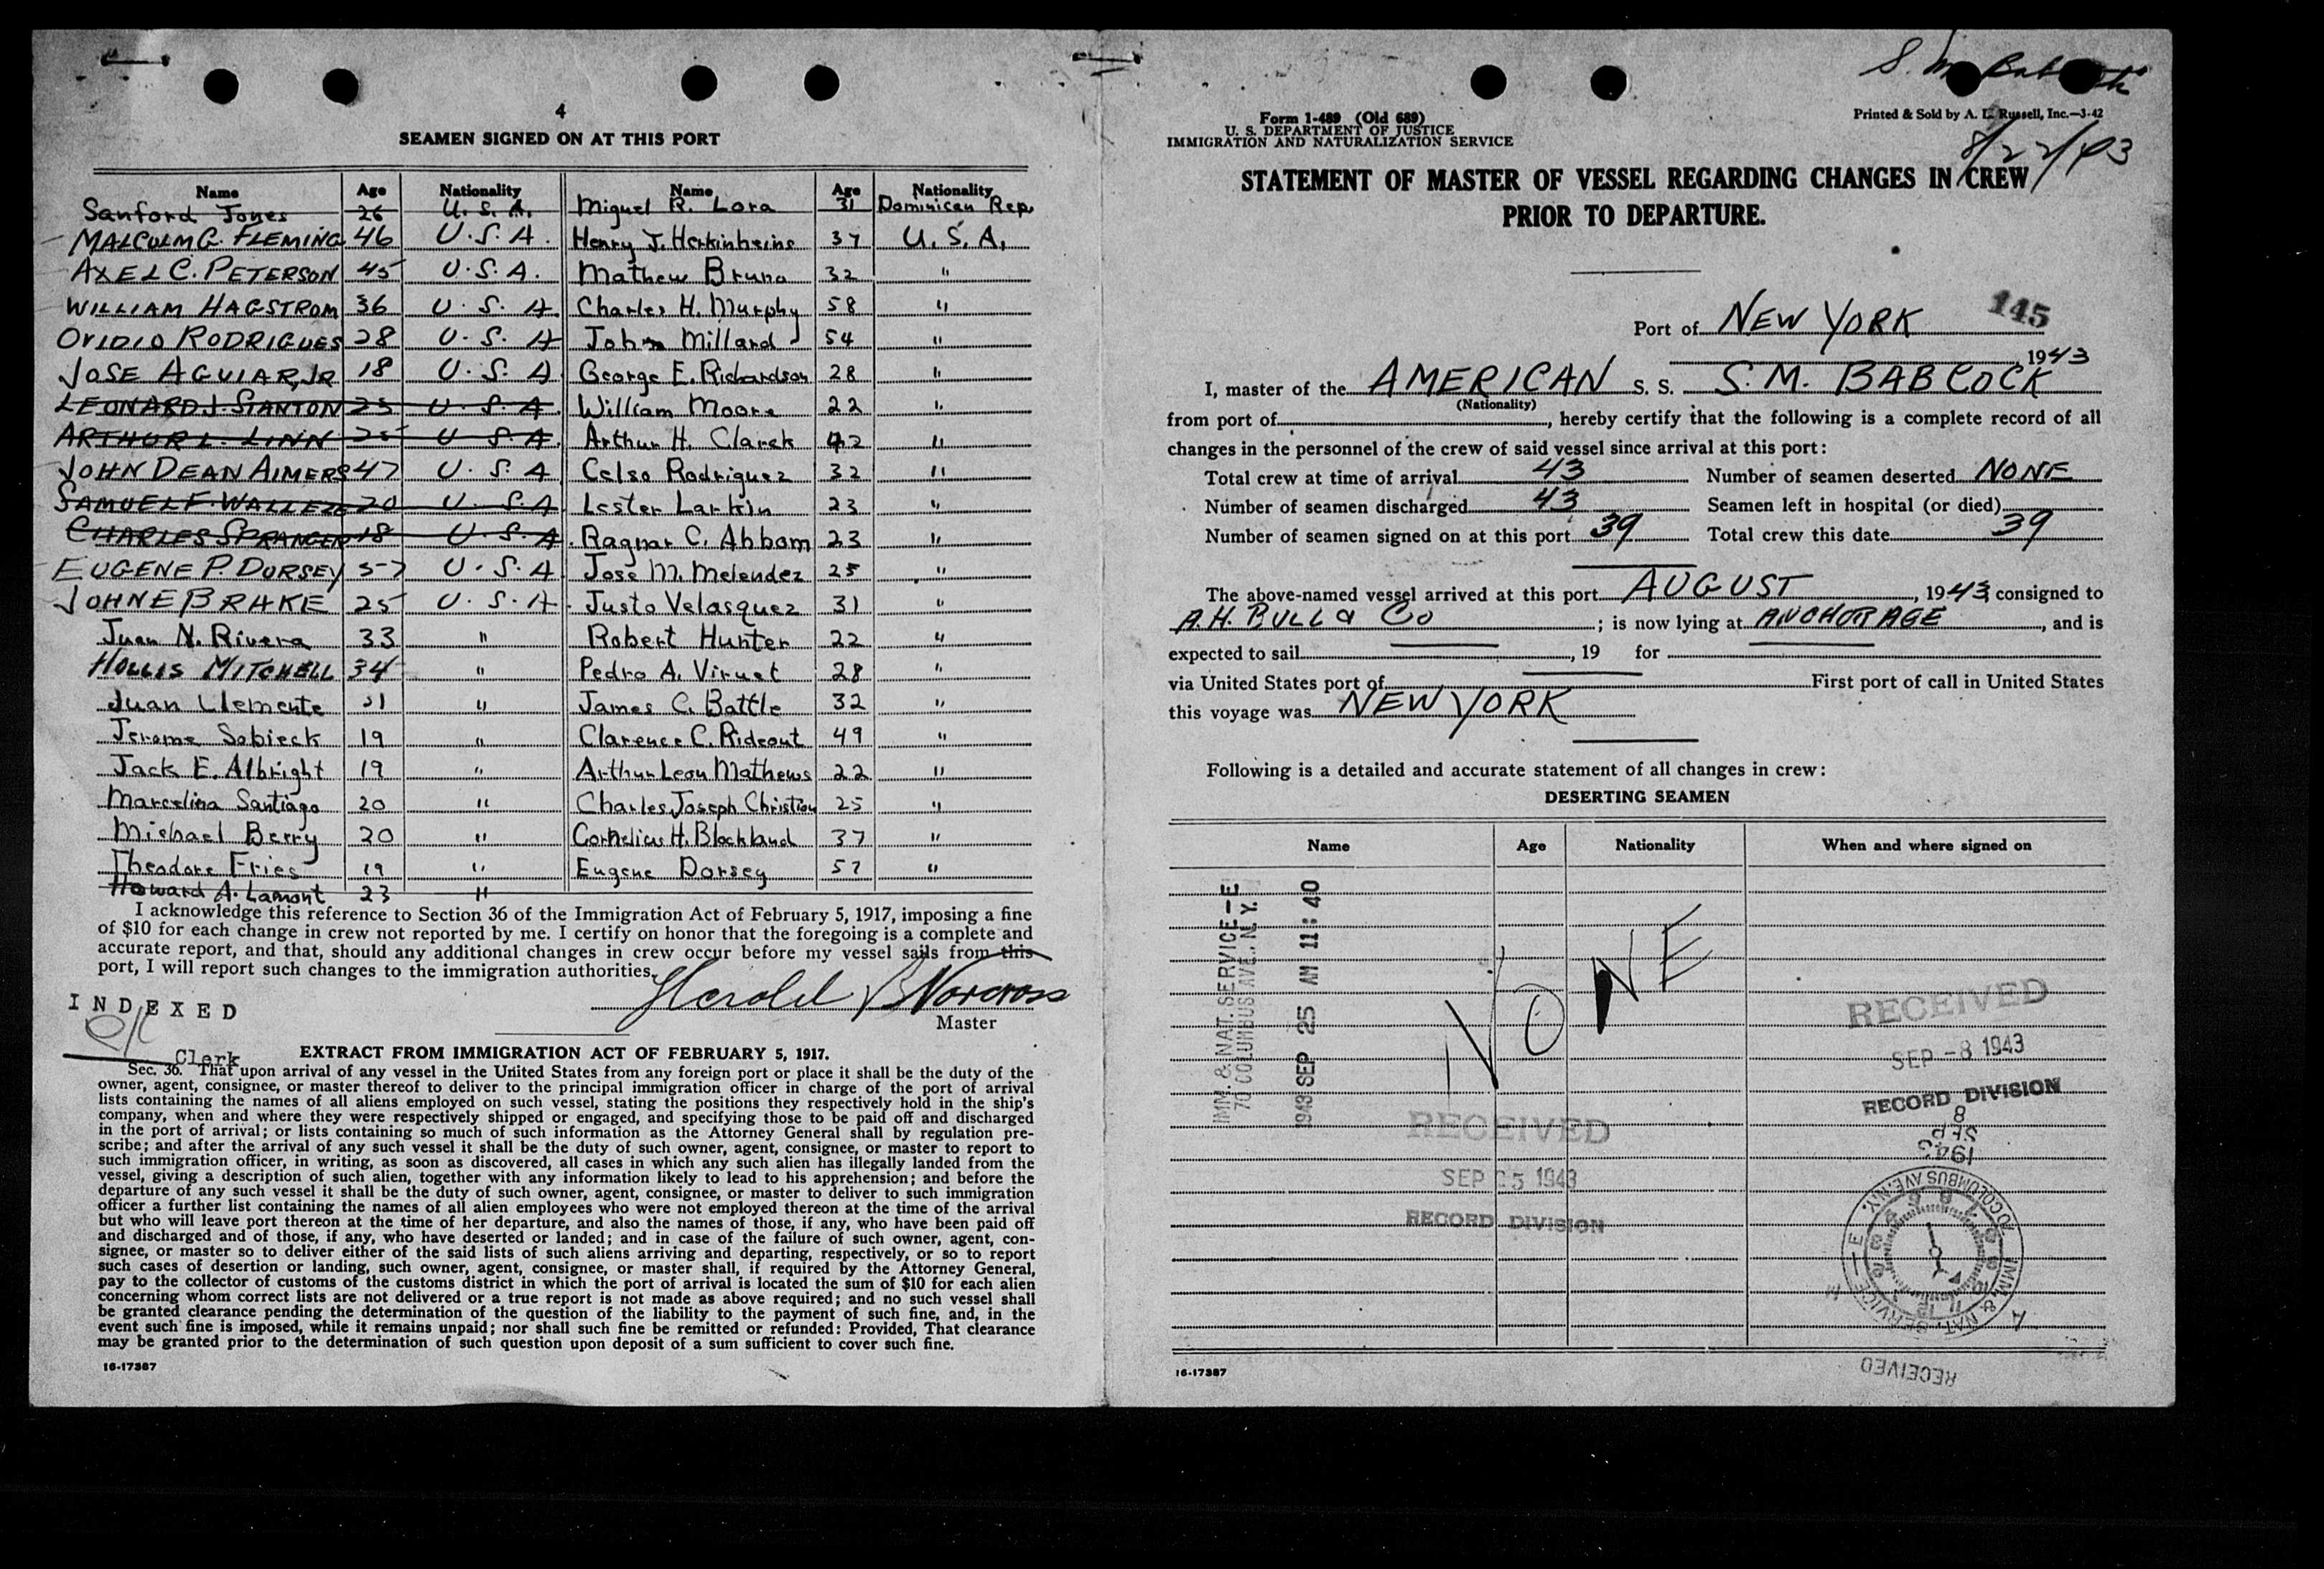 4
SEAMEN SIGNED ON AT THIS PORT
Name Age Nationality Name Age Nationality
Sanford Jones 26 U. S. A. Miguel R. Lora 31 Dominican Rep.
MALCOLM G. FLEMING 46 U. S. A. Henry J. Herkinheins 37 U. S. A.
AXEL C. PETERSON 45 U. S. A. Mathew Bruno 32 "
WILLIAM HAGSTROM 36 U. S. A. Charles H. Murphy 58 "
OVIDIO RODRIGUES 28 U. S. A John Millard 54 "
JOSE AGUIAR, JR 18 U. S. A George E. Richardson 28 "
LEONARD J. STANTON 25 U. S. A William Moore 22 "
ARTHUR L. LINN 25 U S. A. Arthur H. Clarek 42 "
JOHN DEAN AIMERS 47 U. S. A Celso Rodriguez 32 "
SAMUEL F. 20 U. S. A Lester Larkin 23 "
CHARLES SPRANGER 18 U. S. A. Ragnar C. Abbom 23 "
EUGENE P. DORSEY 57 U. S. A Jose M. Melendez 25 "
JOHN E BRAKE 25 U. S. A. Justo Velasquez 31 "
Juan N. Rivera 33 " Robert Hunter 22 "
HOLLIS MITCHELL 34 " Pedro A. Viruet 28 "
Juan Clemente 31 " James C. Battle 32 "
Jerome Sobieck 19 " Clarence C. Rideout 49 "
Jack E. Albright 19 " Arthur Leon Mathews 22 "
Marcelina Santiago 20 " Charles Joseph Christian 25 "
Michael Berry 20 " Cornelius H. Blockland 37 "
Theodore Fries 19 " Eugene Dorsey 57 "
Howard A. Lamont 23 "
I acknowledge this reference to Section 36 of the Immigration Act of February 5, 1917, imposing a fine
of $10 for each change in crew not reported by me. I certify on honor that the foregoing is a complete and
accurate report, and that, should any additional changes in crew occur before my vessel sails from this
port, I will report such changes to the immigration authorities.
Harold B Norcross
Master
INDEXED
Clerk
EXTRACT FROM IMMIGRATION ACT OF FEBRUARY 5, 1917.
Sec. 36. That upon arrival of any vessel in the United States from any foreign port or place it shall be the duty of the
owner, agent, consignee, or master thereof to deliver to the principal immigration officer in charge of the port of arrival
lists containing the names of all aliens employed on such vessel, stating the positions they respectively hold in the ship's
company, when and where they were respectively shipped or engaged, and specifying those to be paid off and discharged
in the port of arrival; or lists containing so much of such information as the Attorney General shall by regulation pre-
scribe; and after the arrival of any such vessel it shall be the duty of such owner, agent, consignee, or master to report to
such immigration officer, in writing, as soon as discovered, all cases in which any such alien has illegally landed from the
vessel, giving a description of such alien, together with any information likely to lead to his apprehension; and before the
departure of any such vessel it shall be the duty of such owner, agent, consignee, or master to deliver to such immigration
officer a further list containing the names of all alien employees who were not employed thereon at the time of the arrival
but who will leave port thereon at the time of her departure, and also the names of those, if any, who have been paid off
and discharged and of those, if any, who have deserted or landed; and in case of the failure of such owner, agent, con-
signee, or master so to deliver either of the said lists of such aliens arriving and departing, respectively, or so to report
such cases of desertion or landing, such owner, agent, consignee, or master shall, if required by the Attorney General,
pay to the collector of customs of the customs district in which the port of arrival is located the sum of $10 for each alien
concerning whom correct lists are not delivered or a true report is not made as above required; and no such vessel shall
be granted clearance pending the determination of the question of the liability to the payment of such fine, and, in the
event such fine is imposed, while it remains unpaid; nor shall such fine be remitted or refunded: Provided, That clearance
may be granted prior to the determination of such question upon deposit of a sum sufficient to cover such fine.
16-17387
S. M. Babcock
Form 1-489 (Old 689)
U. S. DEPARTMENT OF JUSTICE
IMMIGRATION AND NATURALIZATION SERVICE
Printed & Sold by A. E. Russell, Inc.—3-42
8/22/43
STATEMENT OF MASTER OF VESSEL REGARDING CHANGES IN CREW
PRIOR TO DEPARTURE.
145
Port of NEW YORK
1943
I, master of the AMERICAN S. S. S. M. BABCOCK
(Nationality)
from port of, hereby certify that the following is a complete record of all
changes in the personnel of the crew of said vessel since arrival at this port:
Total crew at time of arrival 43 Number of seamen deserted NONE
Number of seamen discharged 43 Seamen left in hospital (or died)
Number of seamen signed on at this port 39 Total crew this date 39
The above-named vessel arrived at this port AUGUST, 1943, consigned to
A. H. BULL & Co; is now lying at ANCHORAGE, and is
expected to sail, 19 for
via United States port of First port of call in United States
this voyage was NEW YORK
Following is a detailed and accurate statement of all changes in crew:
DESERTING SEAMEN
Name Age Nationality When and where signed on
NONE
IMM. & NAT. SERVICE—E
70 COLUMBUS AVE., N. Y.
1943 SEP 25 AM 11:40
RECEIVED
SEP -8 1943
RECORD DIVISION
RECEIVED
SEP 25 1943
RECORD DIVISION
8
SEP
1943
IMM. & NAT. SERVICE—E. 70 COLUMBUS AVE. N.Y.
A M
RECEIVED
16-17387